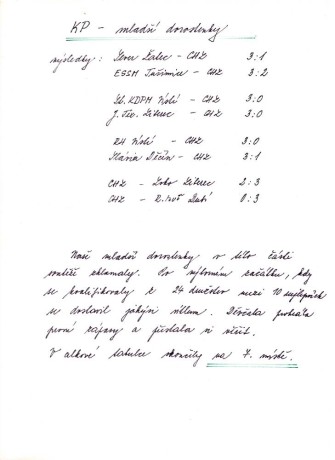 KP - mladší dorostenky
výsledky : Slova Liberec - CHZ 3:1
ESSM Tušimice - CHZ 3:2
KDPM Ústí - CHZ 3:0
J. Tev. Liberec - CHZ 3:0
RH Ústí - CHZ 3:0
Mária Děčín - CHZ 3:1
CHZ - Loko Liberec 2:3
CHZ - Dubí 0:3
Naše mladší dorostenky v této části
soutěže zklamaly. Po výborném začátku, kdy
se kvalifikovaly z 24 družstev mezi 10 nejlepších
se dostavil jakýsi útlum. Děvčata prohrála
první zápasy a přestala si věřit.
V celkové tabulce skončily na 7. místě.